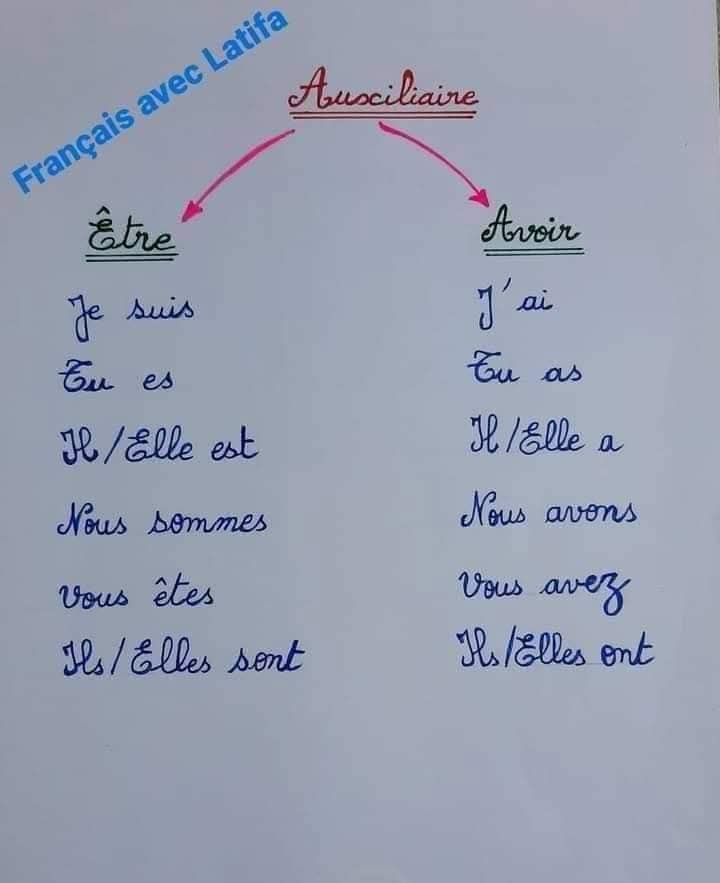 Français avec Latifa
Auxiliaire
Être
Je suis
Tu es
Il/Elle est
Nous sommes
Vous êtes
Ils/Elles sont
Avoir
J'ai
Tu as
Il/Elle a
Nous avons
Vous avez
Ils/Elles ont